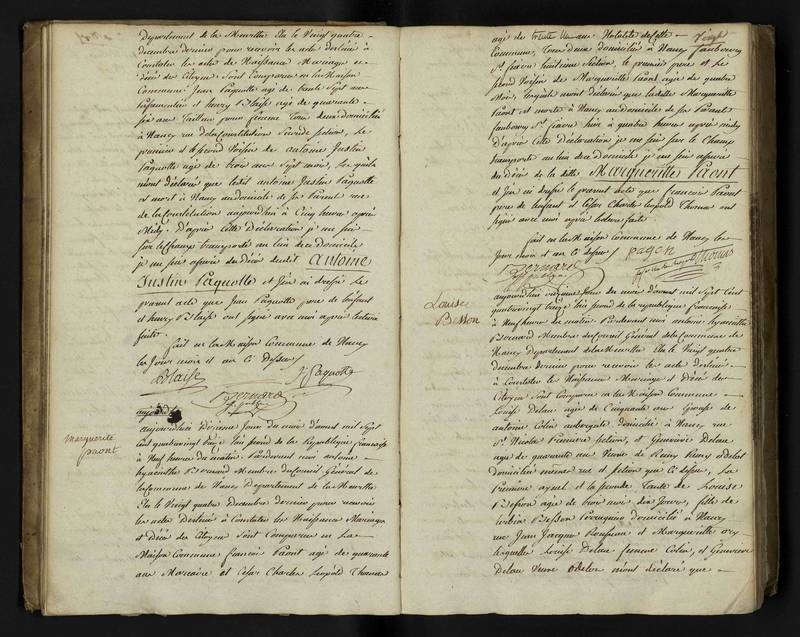 Departement de la Meurthe Elu le Vingt quatre
decembre dernier pour recevoir les acte destiné à
Constater les acte de Naissance Mariage et
décé des Citoyens Sont Comparus en la Maison
Commune Jean Paquotte agé de trente Sept ans
et henry Blaise agé de quarante
six ans Tailleur pour femme Tous deux domiciliés
à Nancy rue de la Constitution Seconde Section, Le
premier et Second Voisin de antoine Justin
Paquotte agé de trois ans Sept mois, Lesquels
mont déclarés que ledit antoine Justin Paquotte
est mort à Nancy au domicile de ses Parent rue
de la Constitution aujourdhui à Cinq heure après
Midy. D'après cette Déclaration je me suis
sur le Champ transporté au lieu de ce domicile
je me suis assuré du Décé dudit Antoine
Justin Paquotte et J'en ai dressé Le
présent acte que Jean Paquotte père de lenfant
et henry Blaise ont Signé avec moi après lecture
faite.
fait en la Maison Commune de Nancy
les Jour mois et an Ci dessus
Blaise J Paquotte
Bernard
off public
aujourdhui
Marguerite
paont
aujourdhui Onzieme Jour du mois d'avril mil Sept
Cent quatrevingt treize Lan Second de la Republique française
à Neuf heures du matin. Pardevant moi antoine
hyacinthe Bernard Membre du Conseil Général de
la Commune de Nancy Departement de la Meurthe
Elu le Vingt quatre Decembre dernier pour recevoir
les actes Destiné à Constater les Naissance Mariages
et Décé des Citoyens Sont Comparus en La
Maison Commune françois Paont agé de quarante
ans Mercaire et Cesar Charles Leopold Thomas
agé de trente ans Notable de cette
Commune, Tous Deux domiciliés à Nancy faubourg
St fiacre huitième Section, le premier père et Le
second Voisin de Marguerite Paont agée de quatre
Mois, lesquels mont Déclarés que ladite Marguerite
Paont est morte à Nancy au domicile de ses Parent
faubourg St fiacre hier à quatre heures après midy
D'après cette Déclaration je me suis sur le Champ
transporté au lieu de ce Domicile je me suis assuré
du Décé de la dite Marguerite Paont
et J'en ai dressé le présent acte que francois Paont
père de lenfant et Cesar Charles leopold Thomas ont
signé avec moi après lecture faite.
fait en la Maison Commune de Nancy les
Jour mois et an Ci dessus
Bernard
off public
Thomas
Louise
Besson
aujourdhui onzieme Jour du mois d'avril mil Sept Cent
quatrevingt treize Lan second de la republique française
à Neuf heures du matin. Pardevant moi antoine hyacinthe
Bernard Membre du Conseil Général de la Commune de
Nancy Departement de la Meurthe Elu le Vingt quatre
decembre dernier pour recevoir les acte destiné
à Constater les Naissance Mariage et Décé des
Citoyens Sont Comparus en la Maison Commune
Louise Delau agée de Cinquante ans Epouse de
antoine Colin domicilié à Nancy rue
St Nicolas Premiere Section, et Genevieve Delau
agée de quarante ans Veuve de Remy Odelot
domiciliée même rue et Section que Ci dessus, La
Premiere ayeul et la seconde Tante de Louise
Besson agée de trois mois dix Jours, fille de
Besson Perruquier domicilié à Nancy
rue Jean Jacques Rousseau et Marguerite
lesquelles Louise Delau femme Colin, et Genevieve
Delau Veuve Odelot m'ont déclaré que